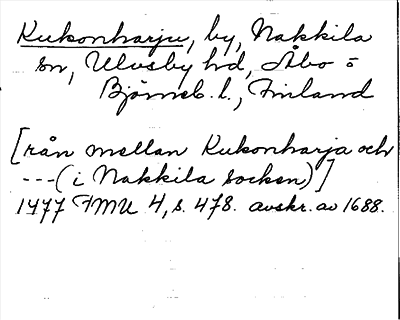 Kukonharju, by, Nakkila
sn, Ulvsby hd, Åbo o
Björneb. l., Finland
[rån mellan Kukonharja och
---(i Nakkila socken)]
1477 FMU 4, s. 478. avskr. av 1688.